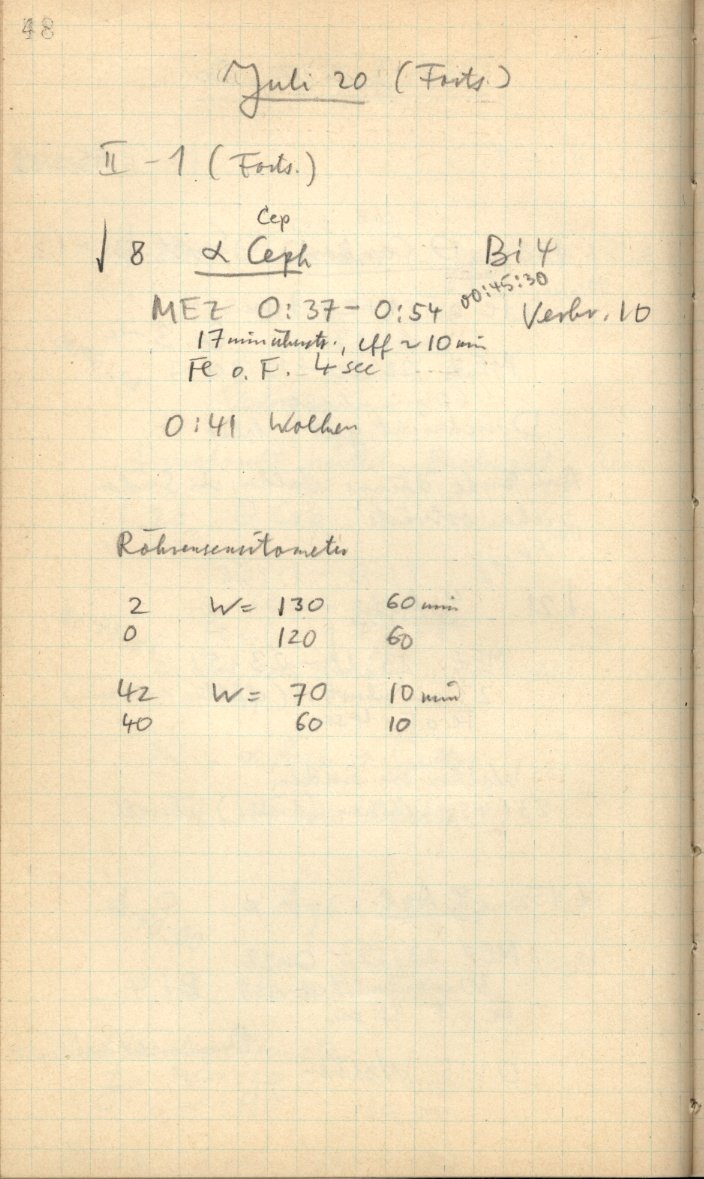 48
Juli 20 (Forts.)
II - 1 (Forts.)
Cep
√ 8 α Ceph Bi 4
MEZ 0:37 - 0:54 00:45:30 Verbr. 10
17 min überstr., eff ~ 10 min
Fe o. F. 4 sec
0:41 Wolken
Röhrensensitometer
2 W = 130 60 min
0 120 60
42 W = 70 10 min
40 60 10